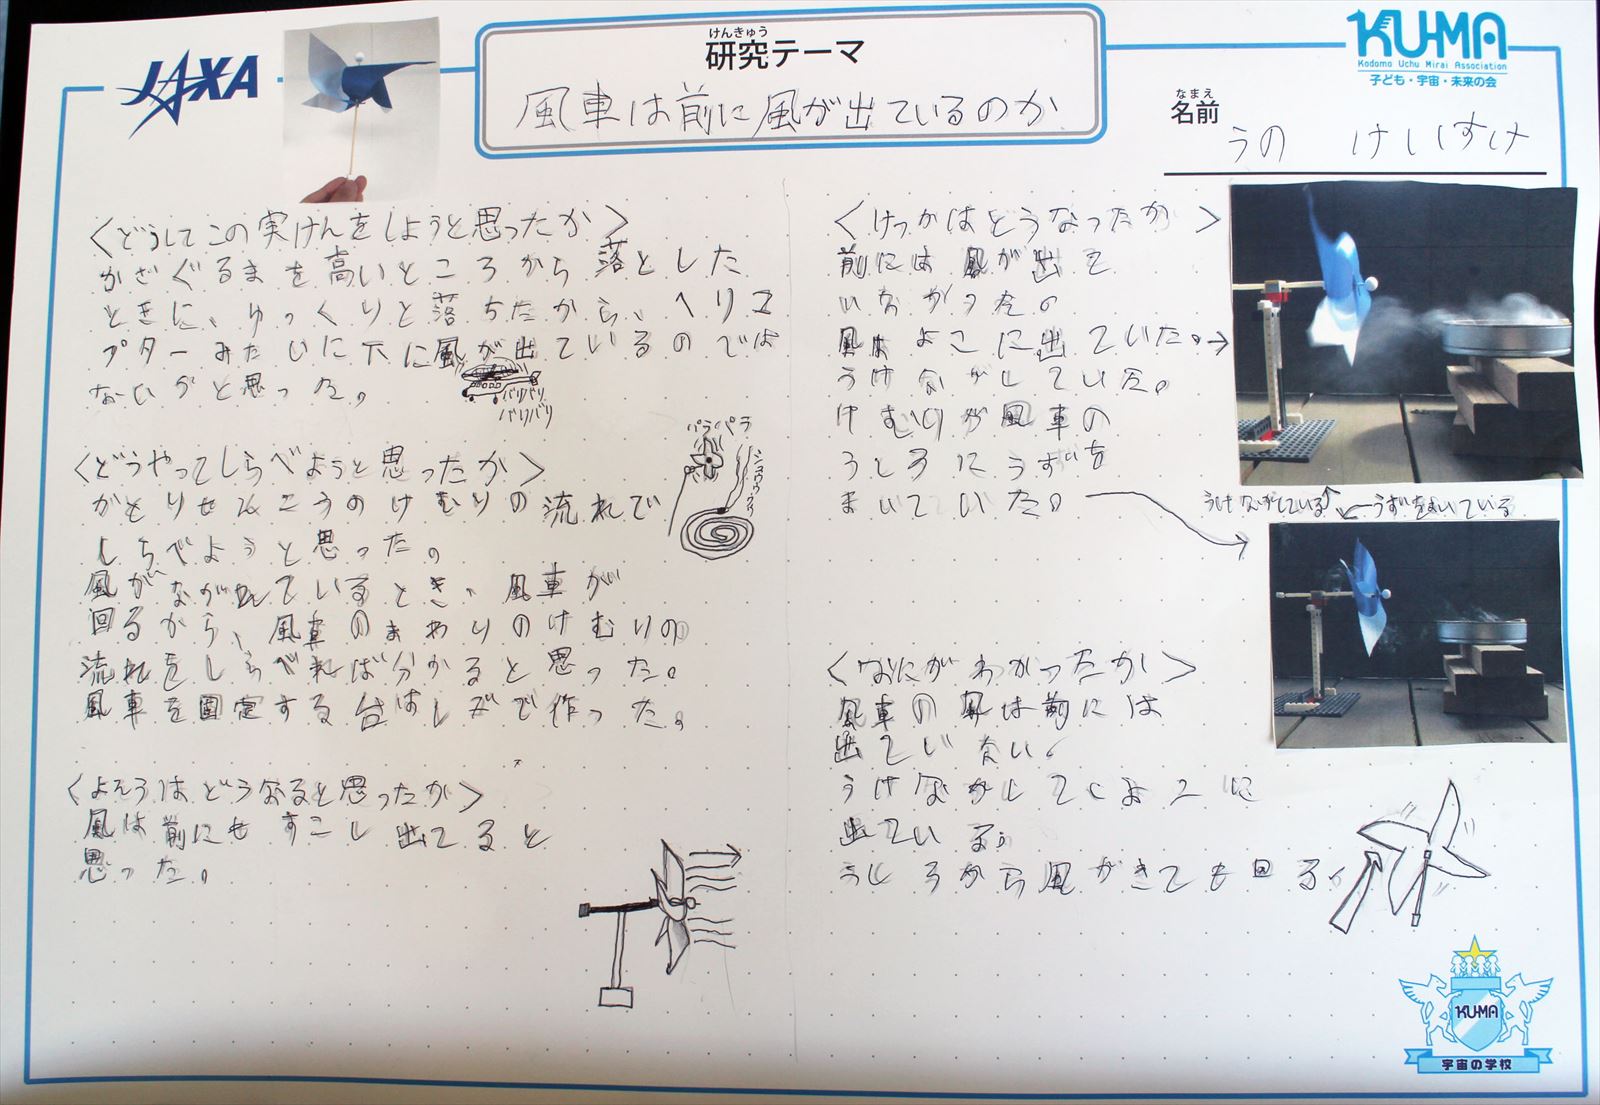 JAXA
けんきゅう
研究テーマ
風車は前に風が出ているのか
KU-MA
Kodomo Uchu Mirai Association
子ども・宇宙・未来の会
なまえ
名前
うの けいすけ
<どうしてこの実けんをしようと思ったか>
かざぐるまを高いところから落とした
ときに、ゆっくりと落ちたから、ヘリコ
プターみたいに下に風が出ているのでは
ないかと思った。
バリバリ
バリバリ
<どうやってしらべようと思ったか>
かとりせんこうのけむりの流れで
しらべようと思った。
風がながれているとき、風車が
回るから、風車のまわりのけむりの
流れをしらべれば分かると思った。
風車を固定する台はレゴで作った。
パラパラ
<よそうはどうなると思ったか>
風は前にもすこし出てると
思った。
<けっかはどうなったか>
前には風が出て
いなかった。
風はよこに出ていた。→
うけながしていた。
けむりが風車の
うしろにうずを
まいていた。
うけながしている
←うずをまいている
<なにがわかったか>
風車の風は前には
出ていない。
うけながしてよこに
出ている。
うしろから風がきても回る。
KU-MA
宇宙の学校